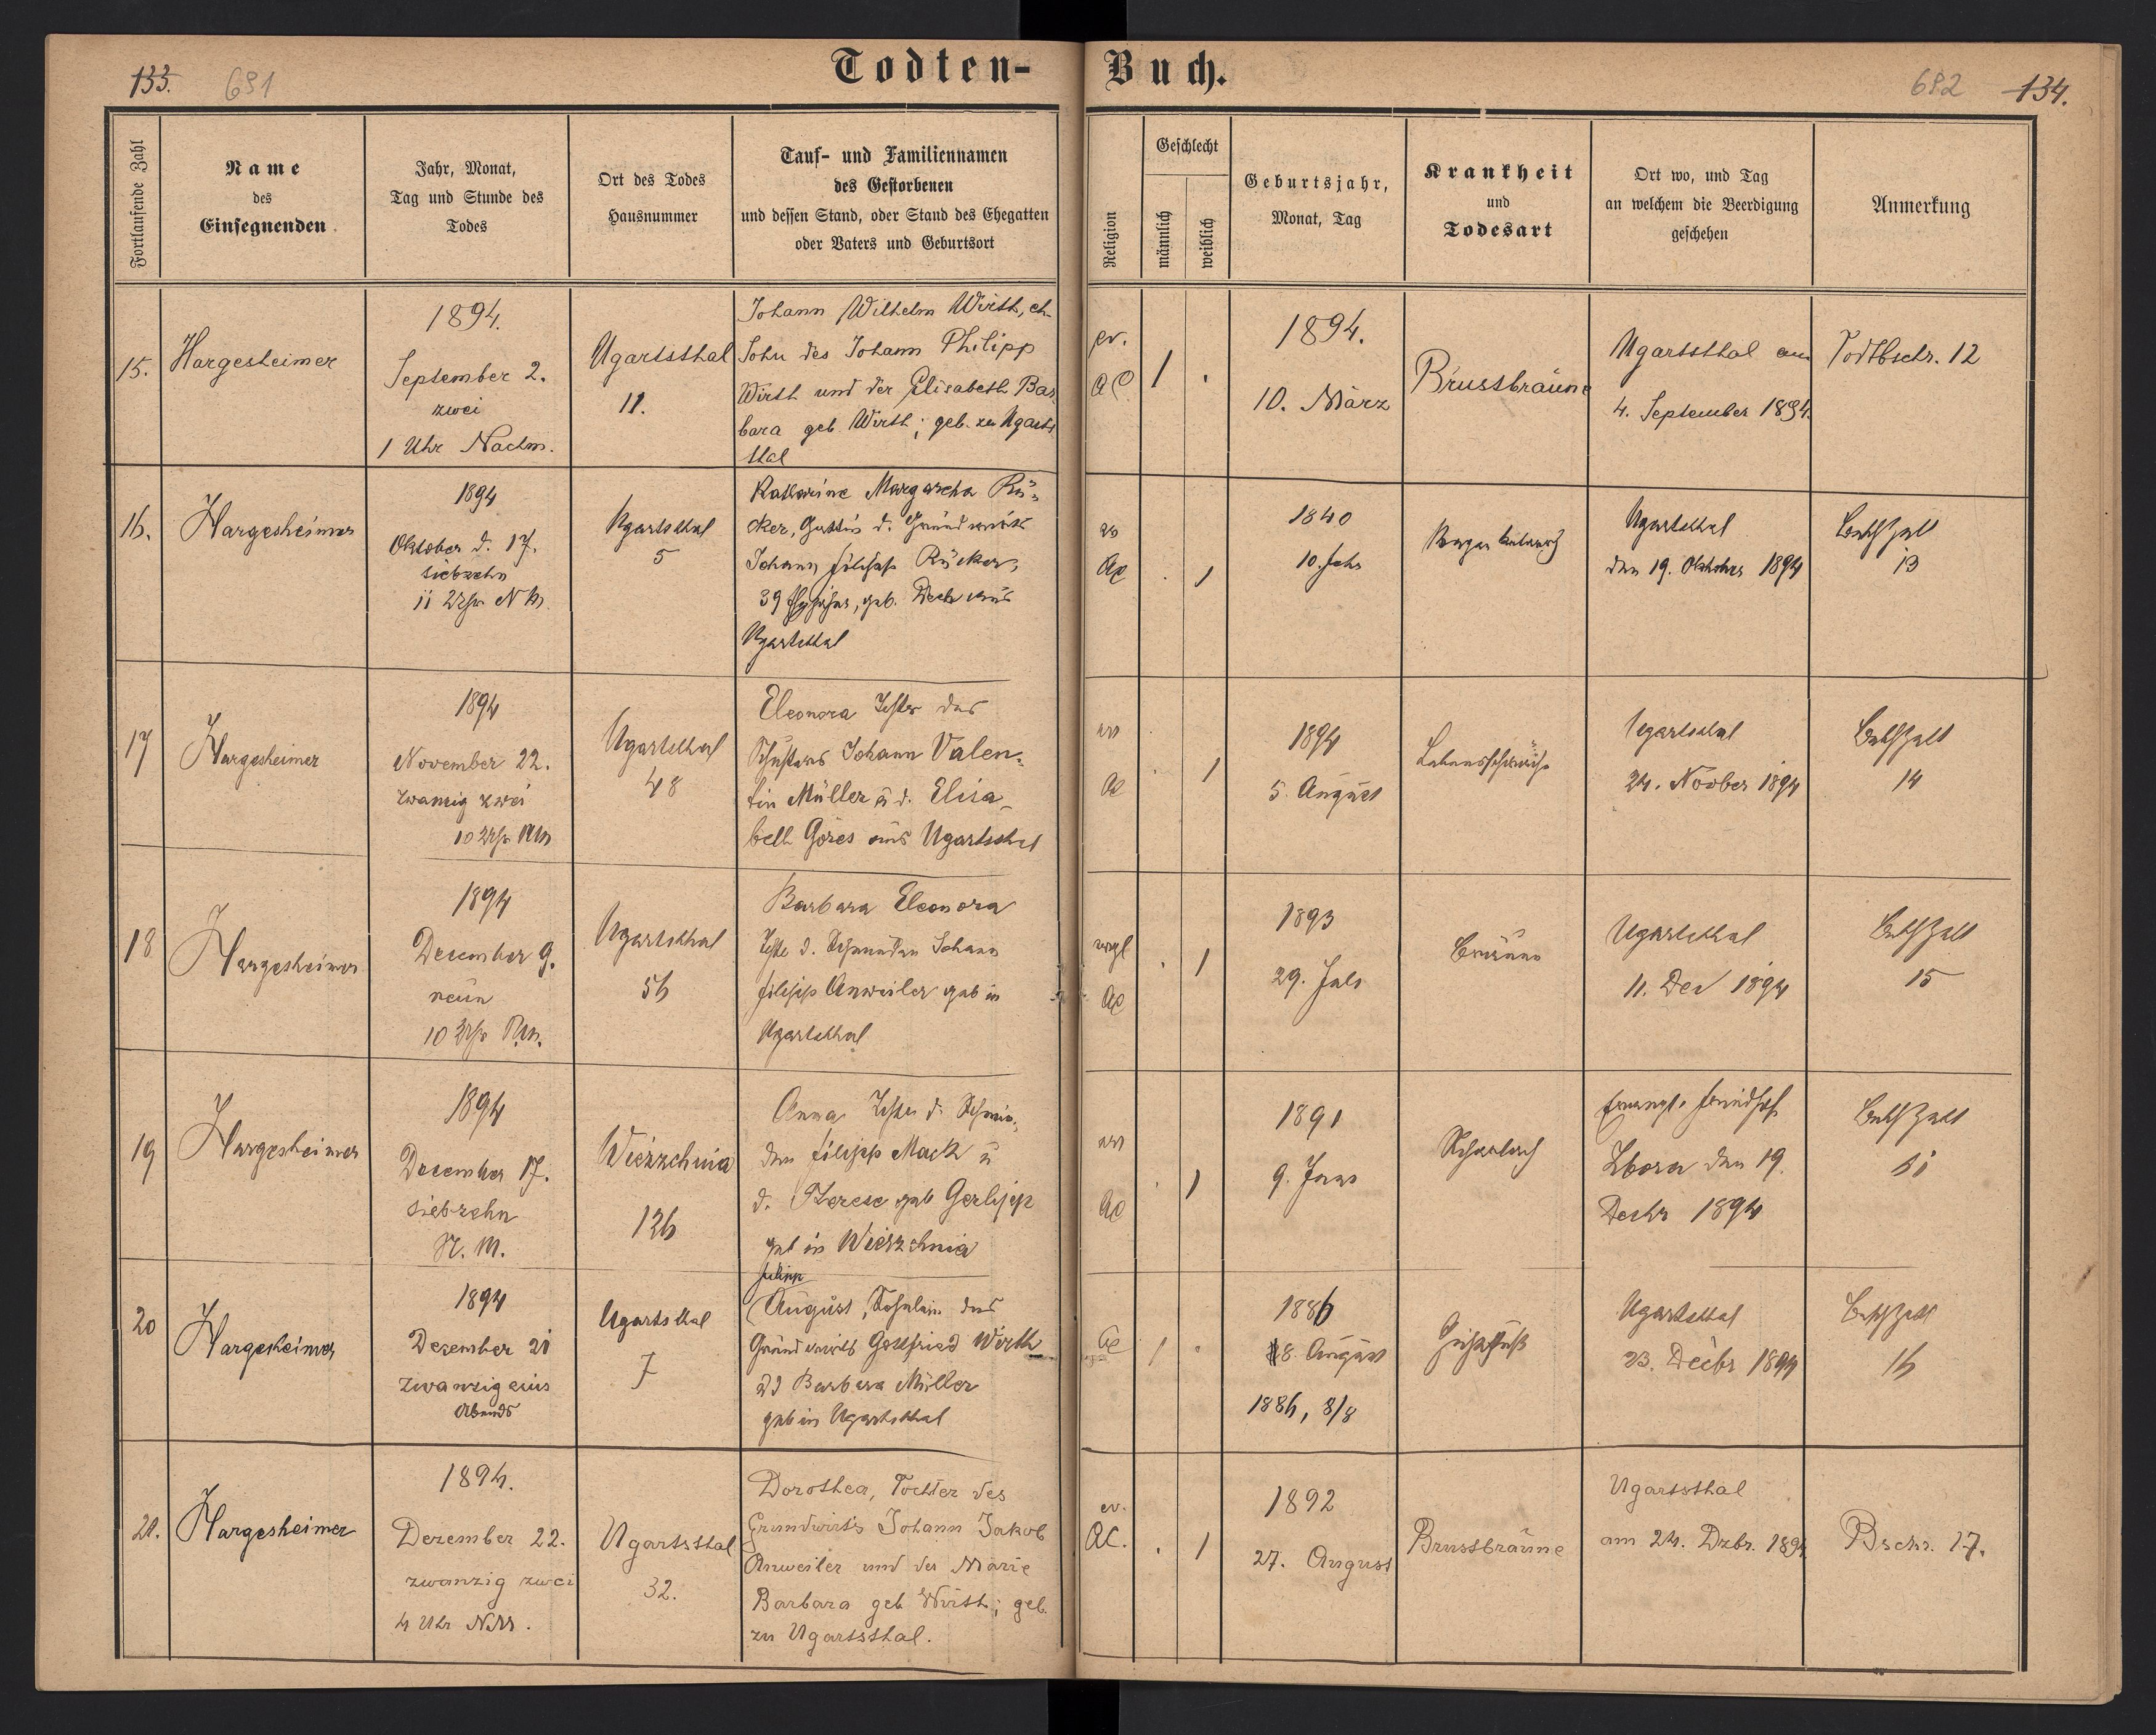 133. 691
Todten-
Fortlaufende Zahl
Name
des
Einsegnenden
Jahr, Monat,
Tag und Stunde des
Todes
Ort des Todes
Hausnummer
Tauf- und Familiennamen
des Gestorbenen
und dessen Stand, oder Stand des Ehegatten
oder Vaters und Geburtsort
15.
Hargesheimer
1894.
September 2.
zwei
1 Uhr Nachm.
Ugartsthal
11.
Johann Wilhelm Wirth, eh-
Sohn des Johann Philipp
Wirth und der Elisabeth Bar
bara geb. Wirth; geb. zu Ugarts
thal
16.
Hargesheimer
1894
Oktober d. 17.
siebzehn
11 Uhr N M.
Ugartsthal
5
Katharine Margaretha Rü-
cker, Gattin d. Grundwirts
Johann Filipp Rücker,
39 geb. Dech aus
Ugartsthal
17
Hargesheimer
1894
November 22.
zwanzig zwei
10 Uhr
Ugartsthal
48
Eleonora Tochter des
Schusters Johann Valen-
tin Müller u d. Elisa-
beth Göres aus Ugartsthal
18
Hargesheimer
1894
Dezember 9.
neun
10 Uhr
Ugartsthal
56
Barbara Eleonora
Tochter d. Johann
Filipp Anweiler geb in
Ugartsthal
19
Hargesheimer
1894
Dezember 17.
siebzehn
N. M.
Wierzchnia
126
Anna Tochter d. Schmie-
den Filipp Mack u
d. Therese geb
geb in Wierzchnia
20
Hargesheimer
1894
Dezember 21
zwanzig eins
Abends
Ugartsthal
7
Filipp
August, Söhnlein des
Grundwirts Gottfried Wirth
u d Barbara Müller
geb in Ugartsthal
21.
Hargesheimer
1894.
Dezember 22.
zwanzig zwei
4 Uhr NM.
Ugartsthal
32.
Dorothea, Tochter des
Grundwirts Johann Jakob
Anweiler und der Marie
Barbara geb Wirth; geb.
zu Ugartsthal.
Buch.
692 134.
Religion
Geschlecht
männlich
weiblich
Geburtsjahr,
Monat, Tag
Krankheit
und
Todesart
Ort wo, und Tag
an welchem die Beerdigung
geschehen
Anmerkung
ev.
AC
1
1894.
10. März
Brustbräune
Ugartsthal am
4. September 1894.
Todtbschr. 12
ev
AC
1
1840
10. Feb
Ugartsthal
den 19. Oktober 1894
13
ev
AC
1
1894
5. August
Lebensschwäche
Ugartsthal
24. Novber 1894
14
evgl
AC
1
1893
29. Juli
Bräune
Ugartsthal
11. Dez 1894
15
ev
AC
1
1891
9. Jan
Scharlach
Evangl. Friedhof
Zbora den 19.
Dezbr 1894
AC
1
1886
18 August
1886, 8/8
Ugartsthal
23. Dezbr 1894
16
ev.
AC.
1
1892
27. August
Brustbräune
Ugartsthal
am 24. Dzbr. 1894
Bschr. 17.